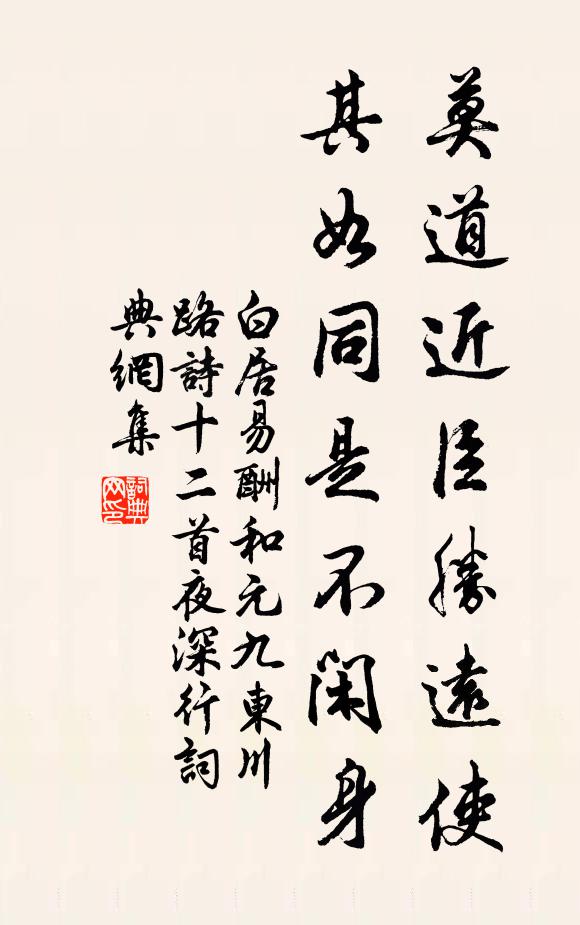 莫道近臣勝遠使
其如同是不閑身
白居易酬和元九東川
路詩十二首夜深行詞
典網集
詞典网印